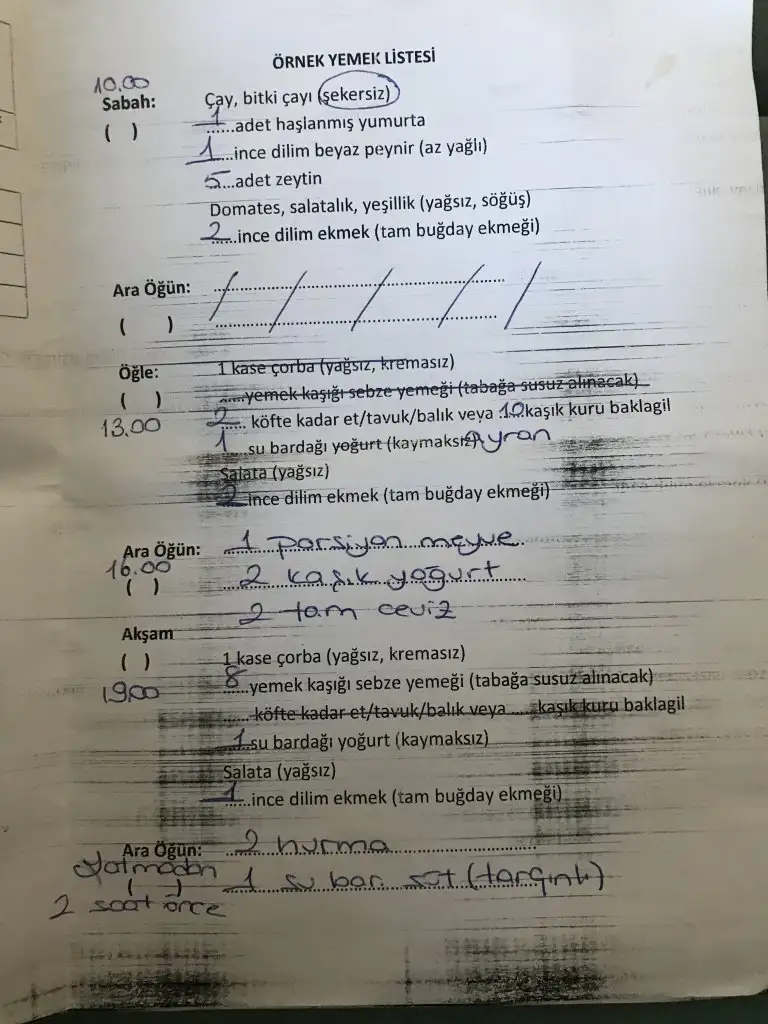 ÖRNEK YEMEK LİSTESİ
10.00
Sabah: Çay, bitki çayı (şekersiz)
( ) 1 ......adet haşlanmış yumurta
1 ....ince dilim beyaz peynir (az yağlı)
5 ....adet zeytin
Domates, salatalık, yeşillik (yağsız, söğüş)
2 ......ince dilim ekmek (tam buğday ekmeği)
Ara Öğün: / / / / /
( )
Öğle: 1 kase çorba (yağsız, kremasız)
( ) ......yemek kaşığı sebze yemeği (tabağa susuz alınacak)
13.00 2 ...... köfte kadar et/tavuk/balık veya 10 kaşık kuru baklagil
1 ....su bardağı yoğurt (kaymaksız) Ayran
Salata (yağsız)
2 ince dilim ekmek (tam buğday ekmeği)
Ara Öğün: 1 porsiyon meyve
16.00 2 kaşık yoğurt
( )
2 tam ceviz
Akşam
( ) 1 kase çorba (yağsız, kremasız)
19.00 8 ......yemek kaşığı sebze yemeği (tabağa susuz alınacak)
...... köfte kadar et/tavuk/balık veya ..... kaşık kuru baklagil
1 ..su bardağı yoğurt (kaymaksız)
Salata (yağsız)
1 ....ince dilim ekmek (tam buğday ekmeği)
Ara Öğün: 2 hurma
Yatmadan
( ) 1 su bar. süt (tarçınlı)
2 saat önce